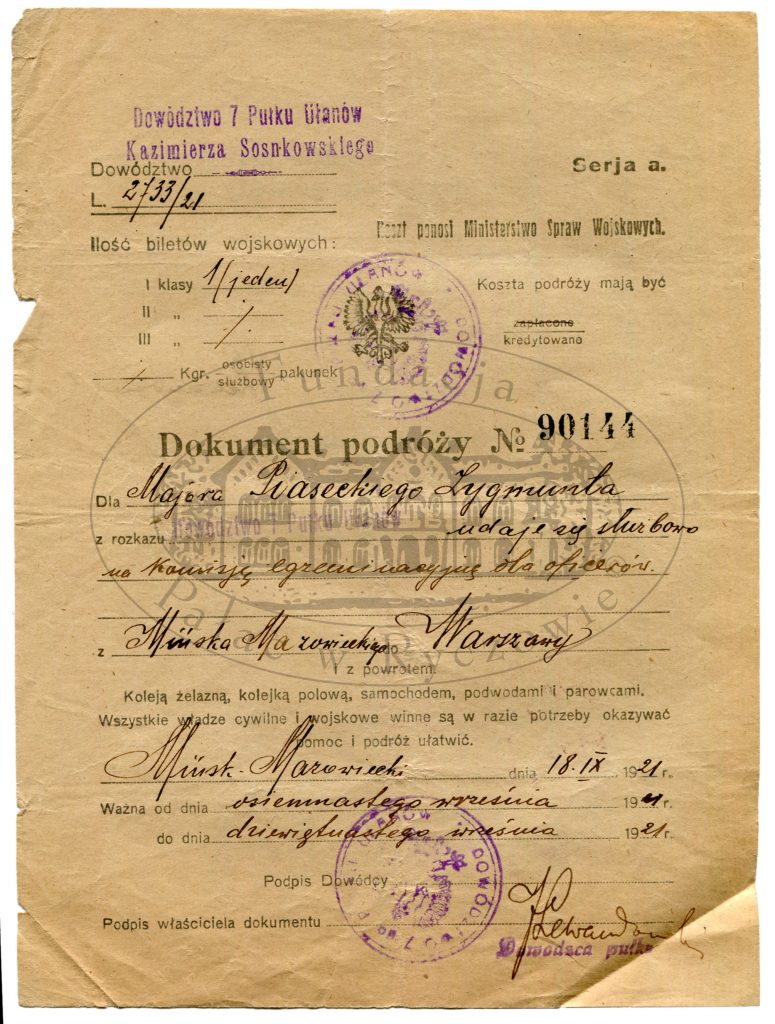 Dowództwo 7 Pułku Ułanów
Kazimierza Sosnkowskiego
Dowództwo
Serja a.
L. 2733/21
Koszt ponosi Ministerstwo Spraw Wojskowych.
Ilość biletów wojskowych:
I klasy 1 (jeden)
Koszta podróży mają być
II „ /.
zapłacone
III „ /.
kredytowano
/. Kgr. osobisty służbowy pakunek
UŁANÓW DOWÓDZTWO 7
Fundacja
Dokument podróży № 90144
Dla Majora Piaseckiego Zygmunta
z rozkazu Dowództwo 7 Pułku Ułanów udaje się służbowo
na komisję egzaminacyjną dla oficerów.
Pałac w Ryczowie ®
z Mińska Mazowieckiego do Warszawy
i z powrotem.
Koleją żelazną, kolejką polową, samochodem, podwodami i parowcami.
Wszystkie władze cywilne i wojskowe winne są w razie potrzeby okazywać
pomoc i podróż ułatwić.
Mińsk-Mazowiecki dnia 18.IX 1921 r.
Ważna od dnia osiemnastego września 1921 r.
do dnia dziewiętnastego września 1921 r.
UŁANÓW DOWÓDZTWO 7
Podpis Dowódcy
Podpis właściciela dokumentu
Dowódsca pułku